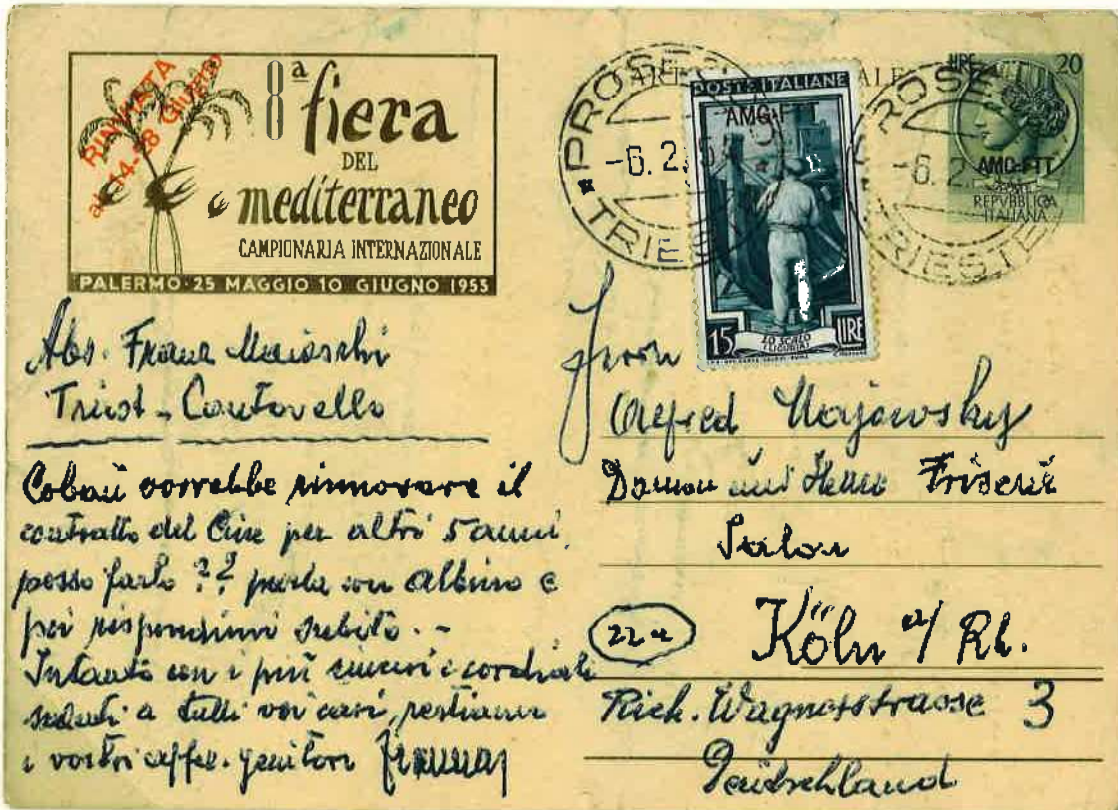 8ª fiera
DEL
mediterraneo
CAMPIONARIA INTERNAZIONALE
PALERMO · 25 MAGGIO 10 GIUGNO 1953
RINVIATA
al 14-28 Giugno
PROSECCO
-6.2.
TRIESTE
POSTE ITALIANE
AMG-F
15 LIRE
LO SCALO
(LIGURIA)
PROSE
-6.2
TRIESTE
LIRE 20
AMG-FTT
POSTE
REPVBBLICA
ITALIANA
Abs. Franz Maioschi
Triest - Contovello
Coban vorrebbe rinnovare il
contratto del Cine per altri 5 anni,
posso farlo ?? parla con Albino e
poi rispondimi subito. -
Intanto con i più sinceri e cordiali
saluti a tutti voi cari, restiamo
i vostri affez. genitori
Herrn
Alfred Majowsky
Damen und Herren Friseur
Salon
22a Köln a/ Rh.
Rich. Wagnerstrasse 3
Deutschland